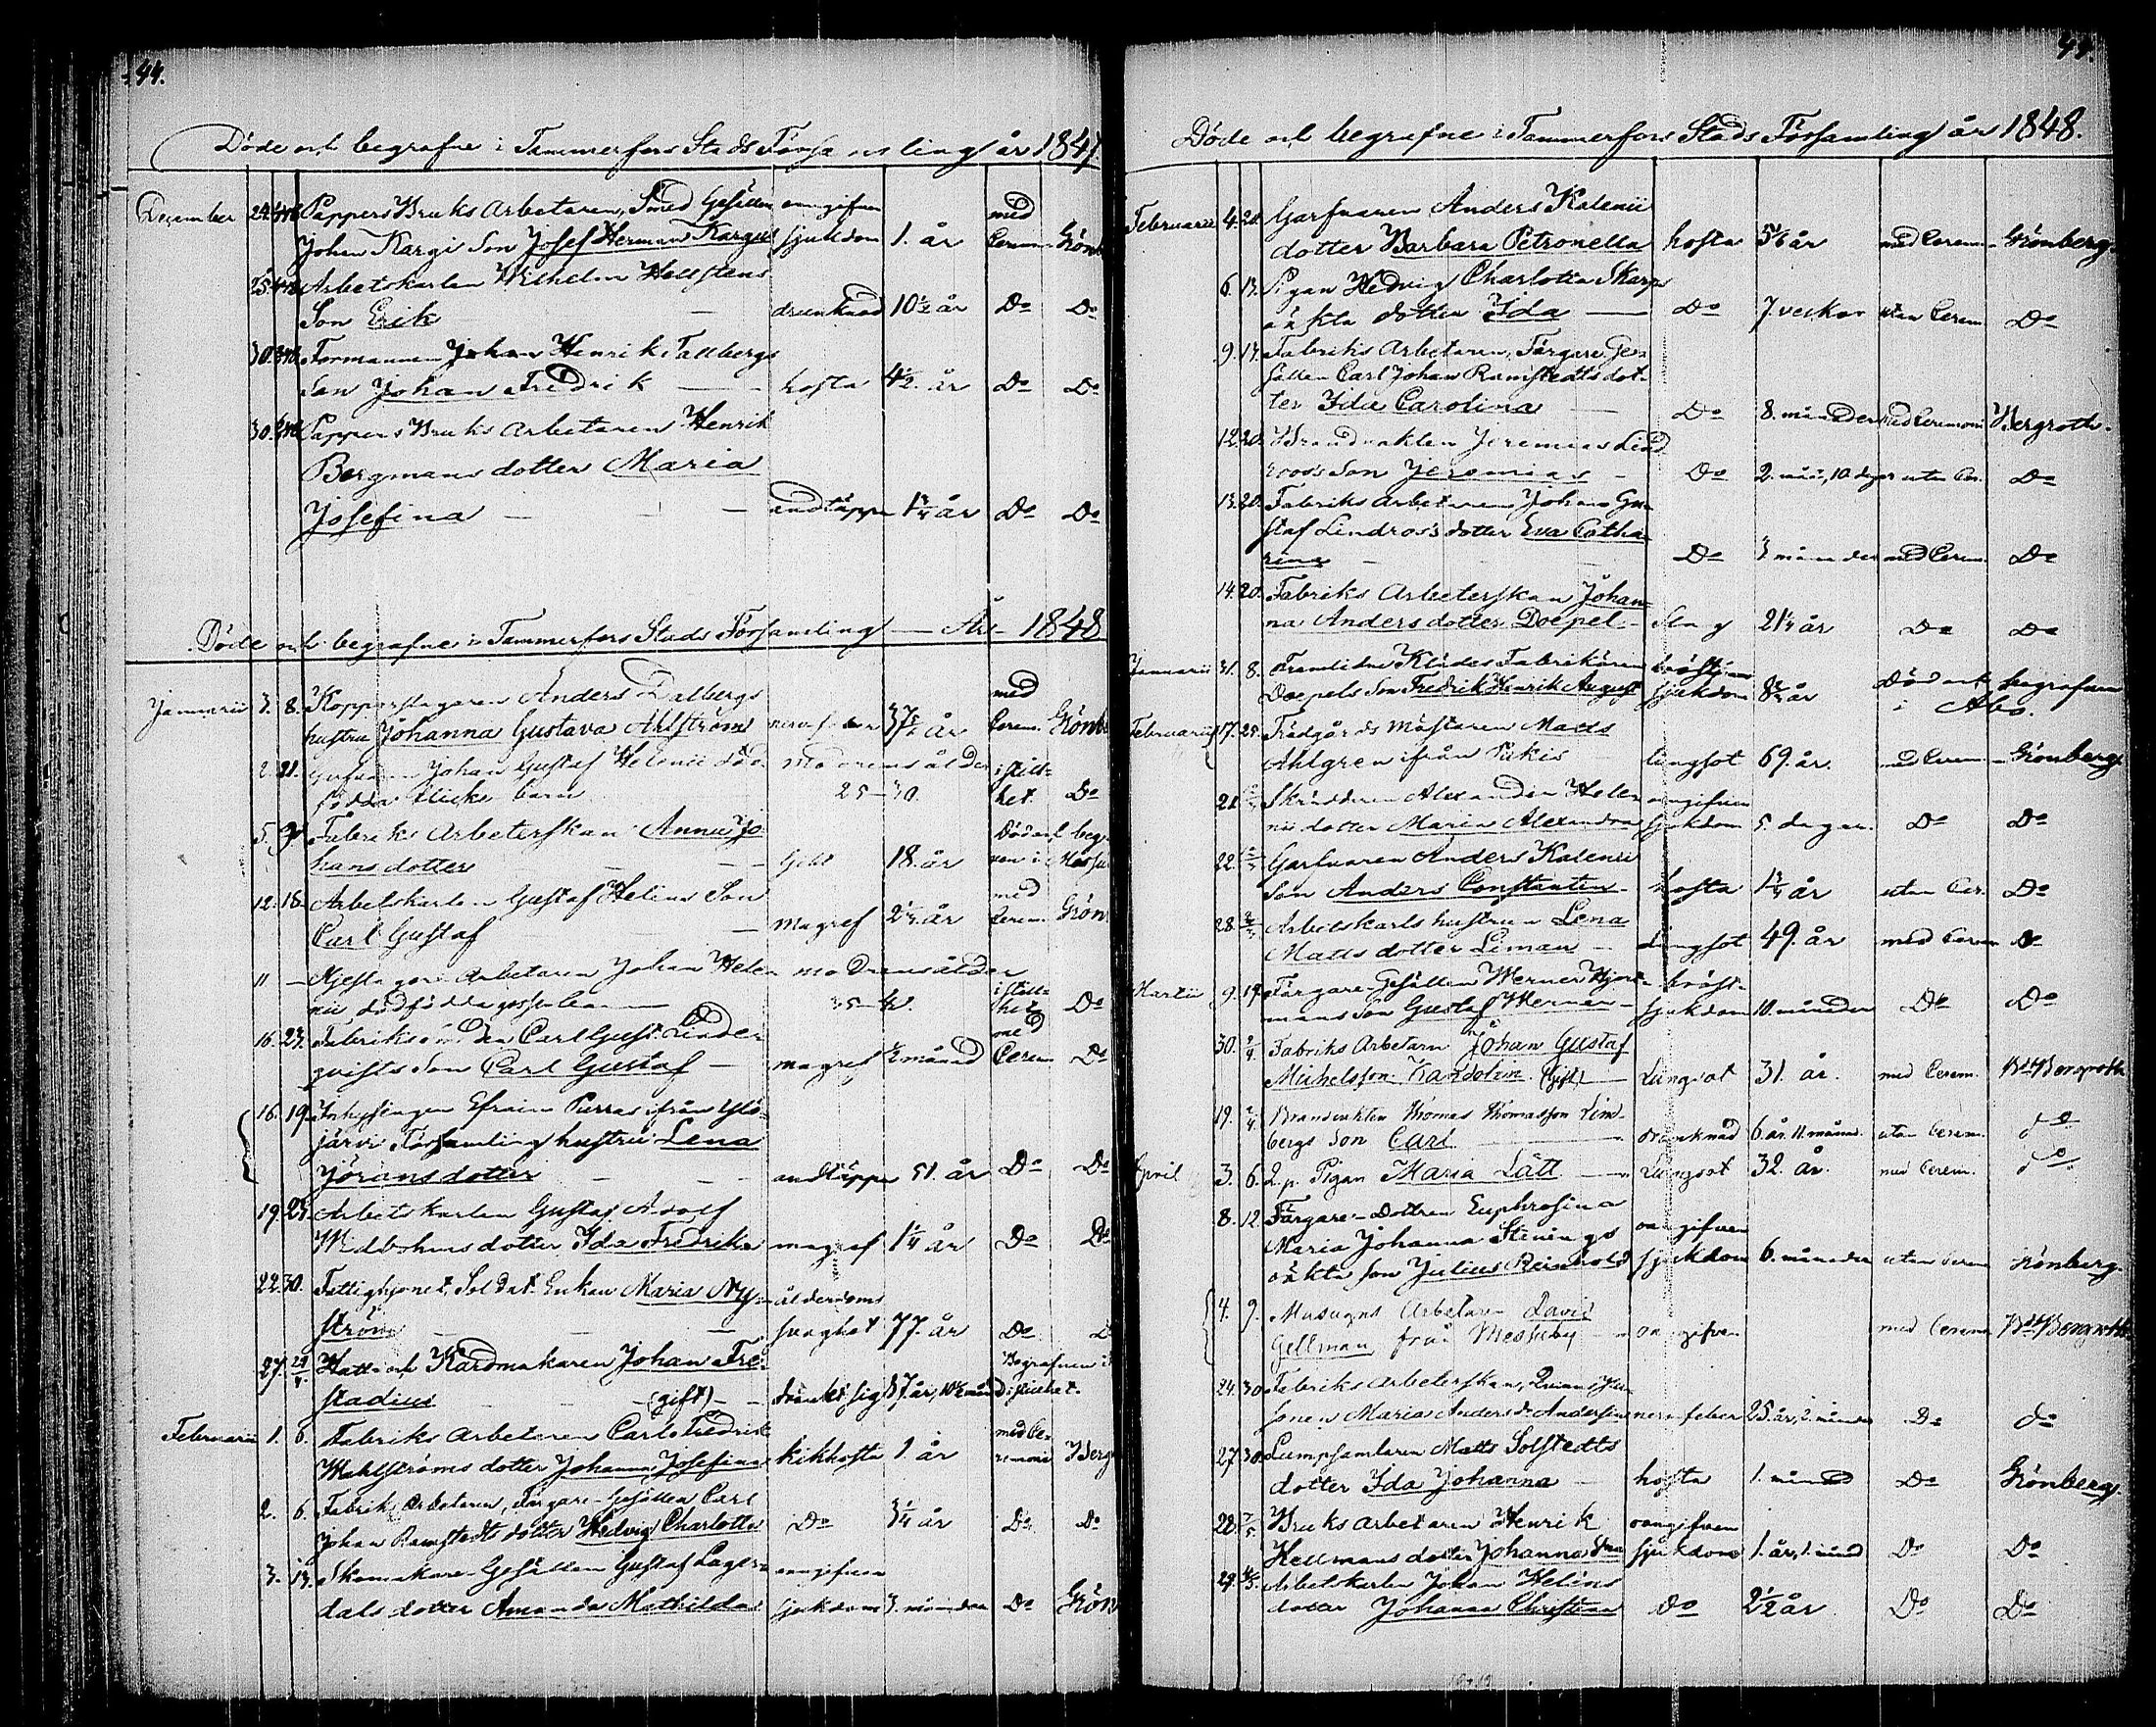 44.
Döde och begrafne i Tammerfors Stads Församling år 1847.
December 24. Pappers Bruks Arbetaren, Smed Gesällen oangifven med
Johan Kargi Son Josef Herman Kargus sjukdom 1. år Cerem. Grönb
25. Arbetskarlen Wilhelm Hellstens
Son Erik — drunknad 10½ år Do Do
30. Formannen Johan Henrik Tallbergs
Son Johan Fredrik — hosta 4½ år Do Do
30. Pappers Bruks Arbetaren Henrik
Bergmans dotter Maria
Josefina — — andtäppa 1¾ år Do Do
Döde och begrafne i Tammerfors Stads Församling — År 1848
Januarii 3. 8. Kopparslagaren Anders Dalbergs med
hustru Johanna Gustava Ahlström nervfeber år Cerem. Grönb
2. 21. Garfvaren Johan Gustaf Helenii död- moderns ålder i still-
födda flicke barn 25-30. het. Do
5. 9. Fabriks Arbeterskan Anna Jo- Död och beg-
hansdotter — — 18. år ven i Messu
12. 18. Arbetskarlen Gustaf Helins Son med
Carl Gustaf — magref 2¼ år Cerem. Grön
11 — Johan Hele- moderns ålder
nii dödfödda gossebarn — 35-40. i still- het Do
16. 23. Carl Gust. Linde- med
qvists Son Carl Gustaf — magref ½ månad Cerem Do
16. 19. Inhysingen Efraim Purras ifrån Ylö-
järvi Församling hustru Lena
Jöransdotter — — andtäppa 51. år Do Do
19. 25. Arbetskarlen Gustaf Adolf
Widbohms dotter Ida Fredrika magref 1¼ år Do Do
22. 30. Fattighjonet, Soldat Enkan Maria Ny- ålderdoms
ström — — svaghet 77. år Do D
27. Hatt- och Kardmakaren Johan Fre- Begrafven i
stadius — — (gift) — dränkt sig 37 år, 10½ mån. i stillhet.
Februarii 1. 6. Fabriks Arbetaren Carl Fredrik med Ce-
Wahlströms dotter Johanna Josefina kikhosta 1. år remoni Berg
2. 6. Fabriks Arbetaren, Färgare-Gesällen Carl
Johan Ramstedts dotter Hedvig Charlotta Do 3¼ år Do Do
3. 13. Skomakare-Gesällen Gustaf Lager- oangifven
dals dotter Amanda Mathilda sjukdom 3. månader Do Grön
Döde och begrafne i Tammerfors Stads Församling år 1848.
Februarii 4. 20. Garfvaren Anders Kalenii
dotter Barbara Petronella hosta år med Cerem. Grönberg.
6. 13. Pigan Hedvig Charlotta Skarps
oäkta dotter Ida — Do 7. veckor utan Cerem. Do
9. 13. Fabriks Arbetaren, Färgare Ge-
sällen Carl Johan Ramstedts dot-
ter Ida Carolina — Do 8. månader med Ceremoni Bergroth.
12. 20. Brandvakten Jeremias Lind
roos's Son Jeremias — Do 2. mån, 10 dagar utan Cer. Do
13. 20. Fabriks Arbetaren Johan Gu-
staf Lindros's dotter Eva Catha-
rina — Do 3 månader med Cerem. Do
14. 20. Fabriks Arbeterskan Johan-
na Andersdotter Doepel. — 21¼ år Do Do
Januarii 31. 8. Framlidne Klädes Fabrikören bröst
Doepels Son Fredrik Henrik August sjukdom år Död och begrafven i Åbo.
Februarii 17. 25. Trädgårds Mästaren Matts
Ahlgren ifrån Pukis — lungsot 69. år. med Cerem. — Grönberg
21. Skräddaren Alexander Hele- oangifven
nii dotter Maria Alexandra sjukdom 5. dagar Do Do
22. Garfvaren Anders Kalenii
Son Anders Constantin — hosta år utan Cer. Do
28. Arbetskarls hustrun Lena
Mattsdotter Leman — lungsot 49. år med Cerem Do
Martii 9. 19. Färgare-Gesällen Werner Hjort- bröst-
mans Son Gustaf Herman — sjukdom 10. månader Do Do
30. 2/4 Fabriks Arbetarn Johan Gustaf
Michelsson Kandolin (Gift) — Lungsot 31. år. med Cerem. Bergroth
19. 2/4 Brandvakten Thomas Thomasson Lind-
bergs Son Carl — drunknad 6. år. 11. månad. utan Cerem. do
April 3. 6. 2. p. Pigan Maria Lätt — Lungsot 32. år. med Cerem. do
8. 12. Färgare-Dottren Euphrosina
Maria Johanna Stenings oangifven
oäkta Son Julius Reinhold sjukdom 6. månader utan Cerem Grönberg.
4. 9. Masugns Arbetaren David
Gellman från Messuby — oangifven med Cerem Bergroth
24. 30. Fabriks Arbeterskan, Qvinns Per-
sonen Maria Anders d. Andersin nerv feber 25. år, 2. månader Do do
27. 30. Lumpsamlaren Matts Solstedts
dotter Ida Johanna — hosta 1. månad Do Grönberg.
28. 7/5 Bruks Arbetaren Henrik oangifven
Hellmans dotter Johanna sjukdom 1. år, 1. månad Do Do
29. Arbetskarlen Johan Helins
dotter Johanna Christina do 2½ år Do Do